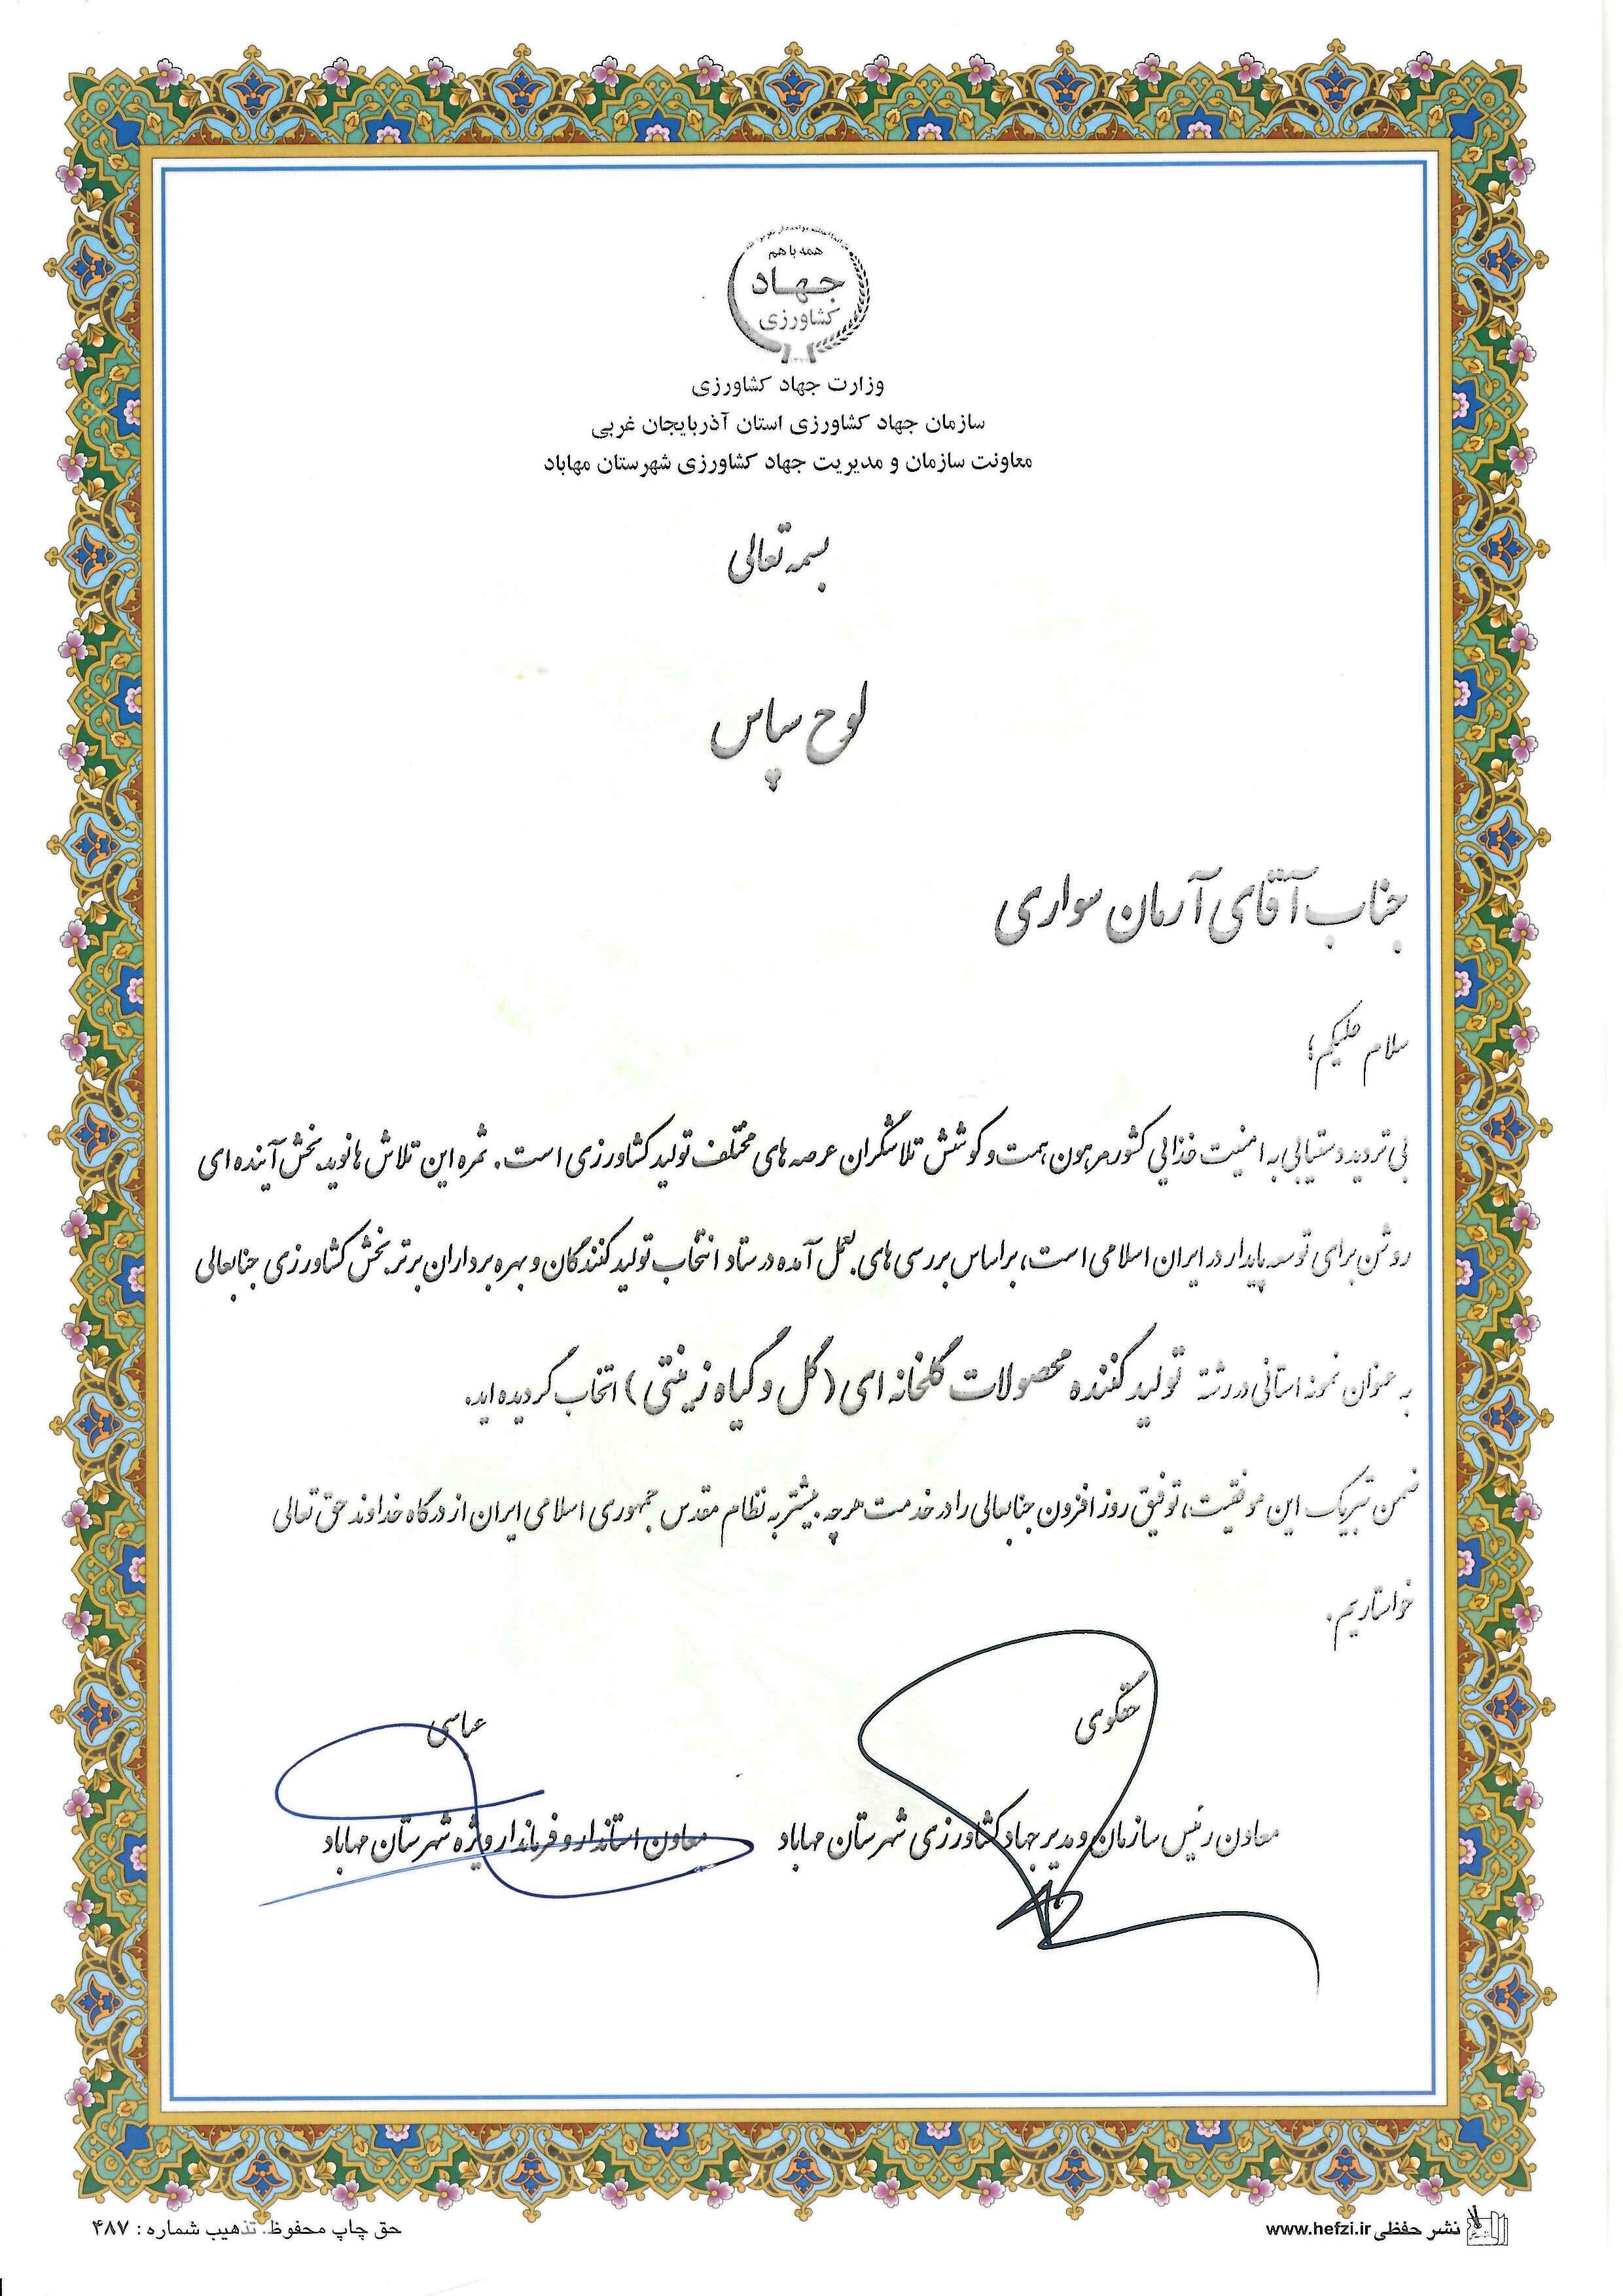 همه با هم
جهاد
کشاورزی
وزارت جهاد کشاورزی
سازمان جهاد کشاورزی استان آذربایجان غربی
معاونت سازمان و مدیریت جهاد کشاورزی شهرستان مهاباد
بسمه تعالی
لوح سپاس
جناب آقای آرمان سواری
سلام علیکم؛
بی تردید دستیابی به امنیت غذایی کشور مرهون همت و کوشش تلاشگران عرصه های مختلف تولید کشاورزی است. ثمره این تلاش ها نوید بخش آینده ای
روشن برای توسعه پایدار در ایران اسلامی است، براساس بررسی های بعمل آمده در ستاد انتخاب تولید کنندگان و بهره برداران برتر بخش کشاورزی جنابعالی
به عنوان نمونه استانی در رشته تولید کننده محصولات گلخانه ای (گل و گیاه زینتی) انتخاب گردیده اید.
ضمن تبریک این موفقیت، توفیق روز افزون جنابعالی را در خدمت هر چه بیشتر به نظام مقدس جمهوری اسلامی ایران از درگاه خداوند حق تعالی
خواستاریم.
حقگوی
عباسی
معاون رئیس سازمان و مدیر جهاد کشاورزی شهرستان مهاباد
معاون استاندار و فرماندار ویژه شهرستان مهاباد
نشر حفظی www.hefzi.ir
حق چاپ محفوظ. تذهیب شماره : ۴۸۷